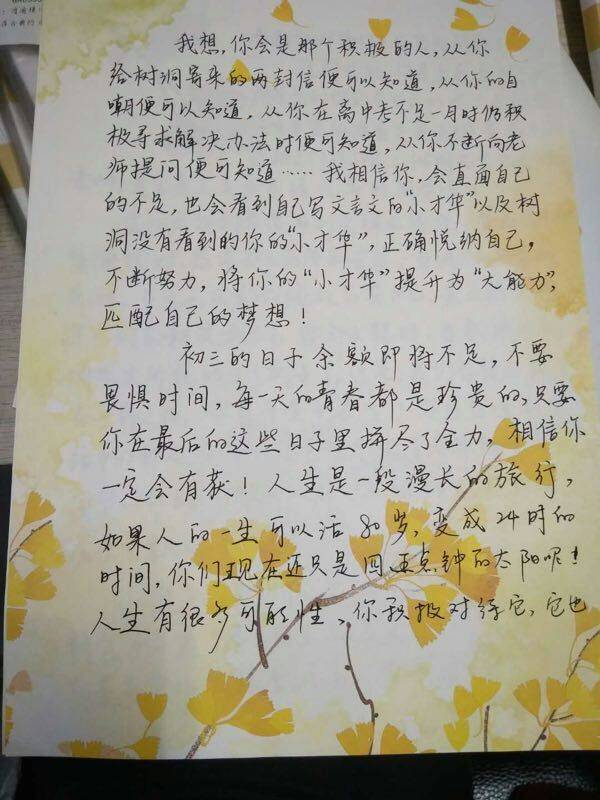 我想，你会是那个积极的人，从你
给树洞寄来的两封信便可以知道，从你的自
嘲便可以知道，从你在离中考不足一月时仍积
极寻求解决办法时便可知道，从你不断向老
师提问便可知道……我相信你，会直面自己
的不足，也会看到自己写文言文的“小才华”以及树
洞没有看到的你的“小才华”，正确悦纳自己，
不断努力，将你的“小才华”提升为“大能力”，
匹配自己的梦想！
初三的日子余额即将不足，不要
畏惧时间，每一天的青春都是珍贵的，只要
你在最后的这些日子里拼尽了全力，相信你
一定会有获！人生是一段漫长的旅行，
如果人的一生可以活80岁，变成24时的
时间，你们现在还只是四五点钟的太阳呢！
人生有很多可能性，你积极对待它，它也